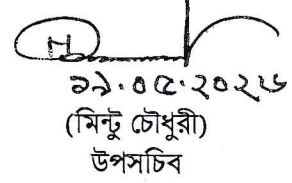 ১৯.০৫.২০২৬
(মিন্টু চৌধুরী)
উপসচিব